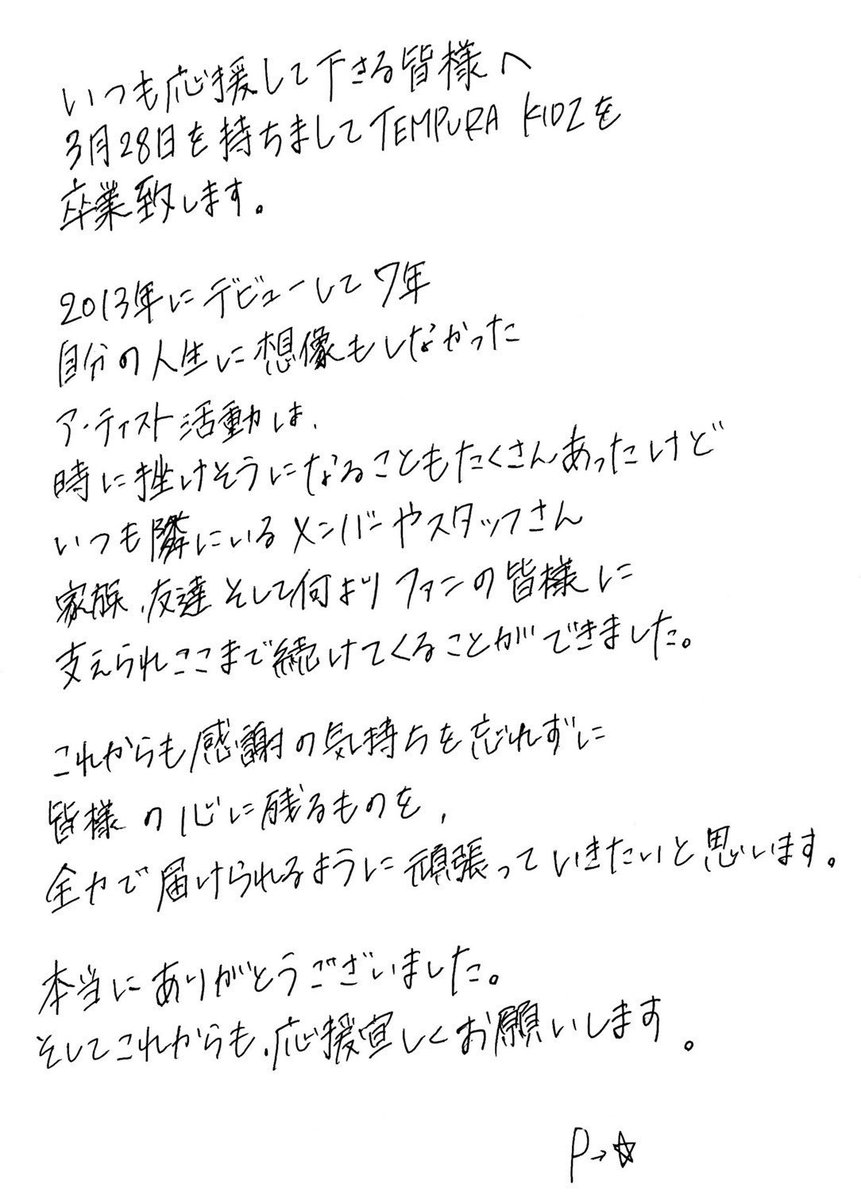 いつも応援して下さる皆様へ
3月28日を持ちましてTEMPURA KIDZを
卒業致します。
2013年にデビューして7年
自分の人生に想像もしなかった
アーティスト活動は、
時に挫けそうになることもたくさんあったけど
いつも隣にいるメンバーやスタッフさん
家族、友達そして何よりファンの皆様に
支えられここまで続けてくることができました。
これからも感謝の気持ちを忘れずに
皆様の心に残るものを、
全力で届けられるように頑張っていきたいと思います。
本当にありがとうございました。
そしてこれからも、応援宜しくお願いします。
P→☆